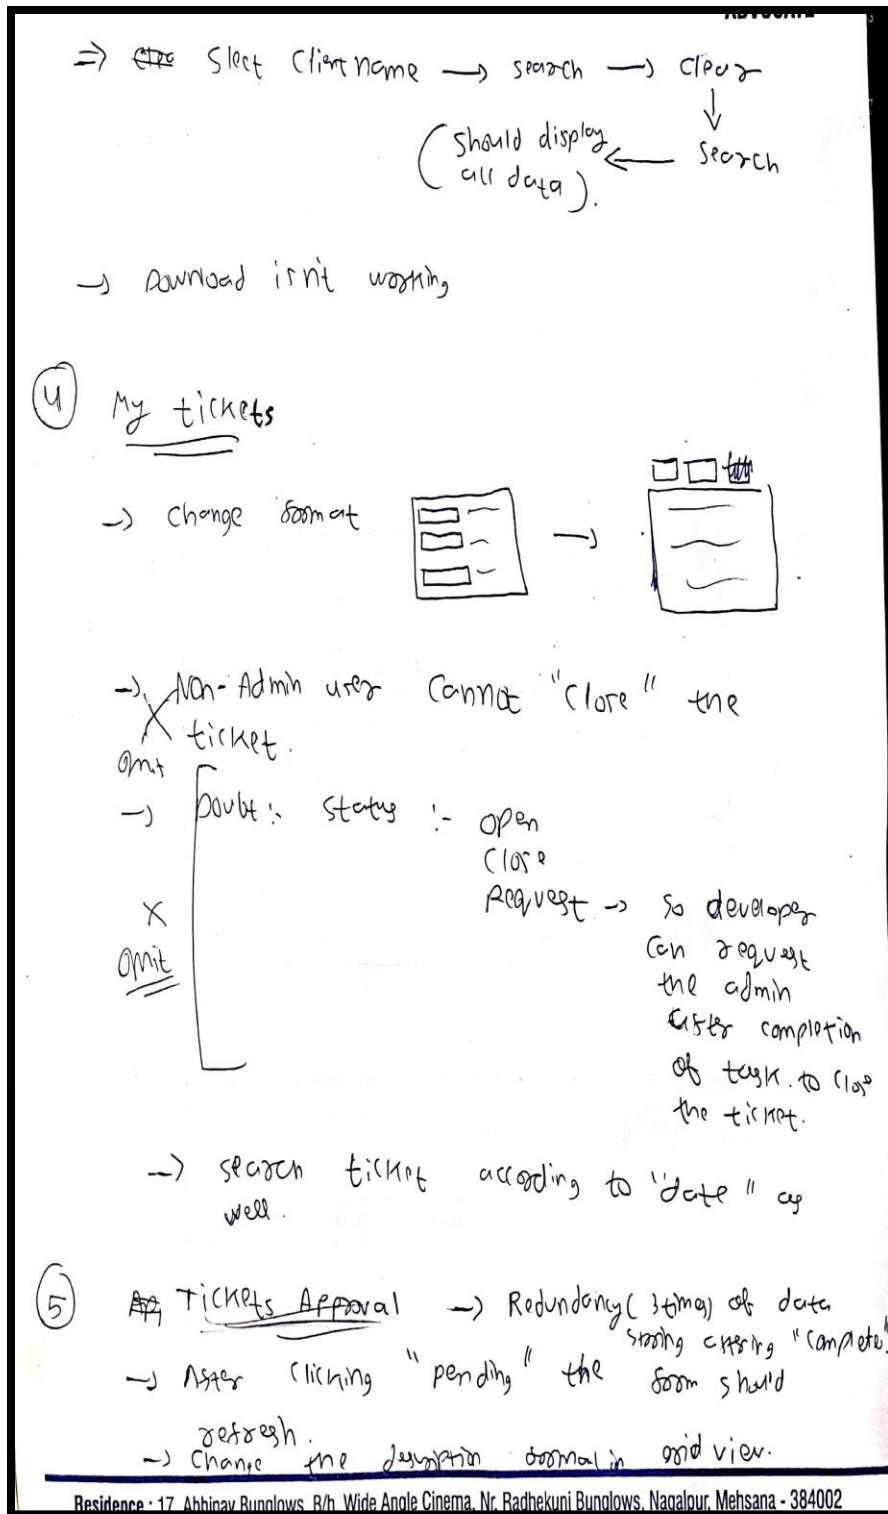 ADVOCATE
=> Slect Client name -> search -> clear
↓
(should display <- search
all data).
-> Download isn't working
4 My tickets
-> Change format ->
-> Non-Admin user cannot "close" the
X ticket.
omit
-> Doubt :- status :- open
close
Request -> so developer
X can request
omit the admin
after completion
of task. to close
the ticket.
-> search ticket according to "date" as
well.
5 Tickets Approval -> Redundancy (3 times) of data
"complete"
-> After clicking "pending" the form should
refresh.
-> Change the in grid view.
Residence : 17, Abhinav Bunglows, B/h. Wide Angle Cinema, Nr. Radhekunj Bunglows, Nagalpur, Mehsana - 384002